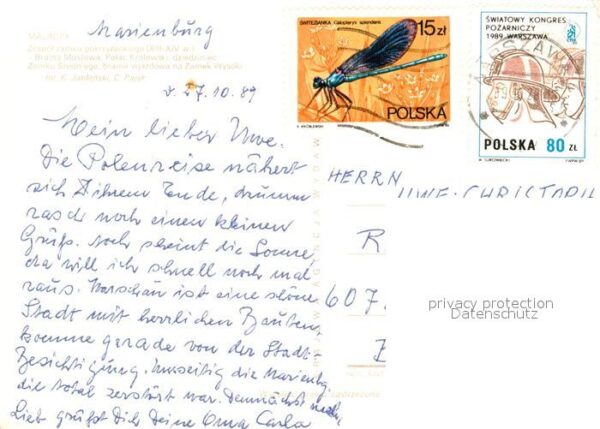 Marienburg
MALBORK
Zespół zamku pokrzyżackiego (XIII-XIV w.)
Zamku Średniego, brama wjazdowa na Zamek Wysoki
d. 27.10.89
Mein lieber Uwe.
Die Polenreise nähert
sich Ihrem Ende, drumm
rasch noch einen kleinen
Gruß. Noch scheint die Sonne,
da will ich schnell noch mal
raus. Warschau ist eine schöne
Stadt mit herrlichen Bauten,
komme gerade von der Stadt-
Besichtigung. Umseitig die Marienbg.
die total zerstört war. Demnächst mehr,
Lieb grüßt Dich Deine Oma Carla
ŚWITEZIANKA Calopteryx splendens
15 zł
POLSKA
ŚWIATOWY KONGRES
POŻARNICZY
1989 WARSZAWA
POLSKA 80 ZŁ
HERRN
UWE
R
607
privacy protection
Datenschutz